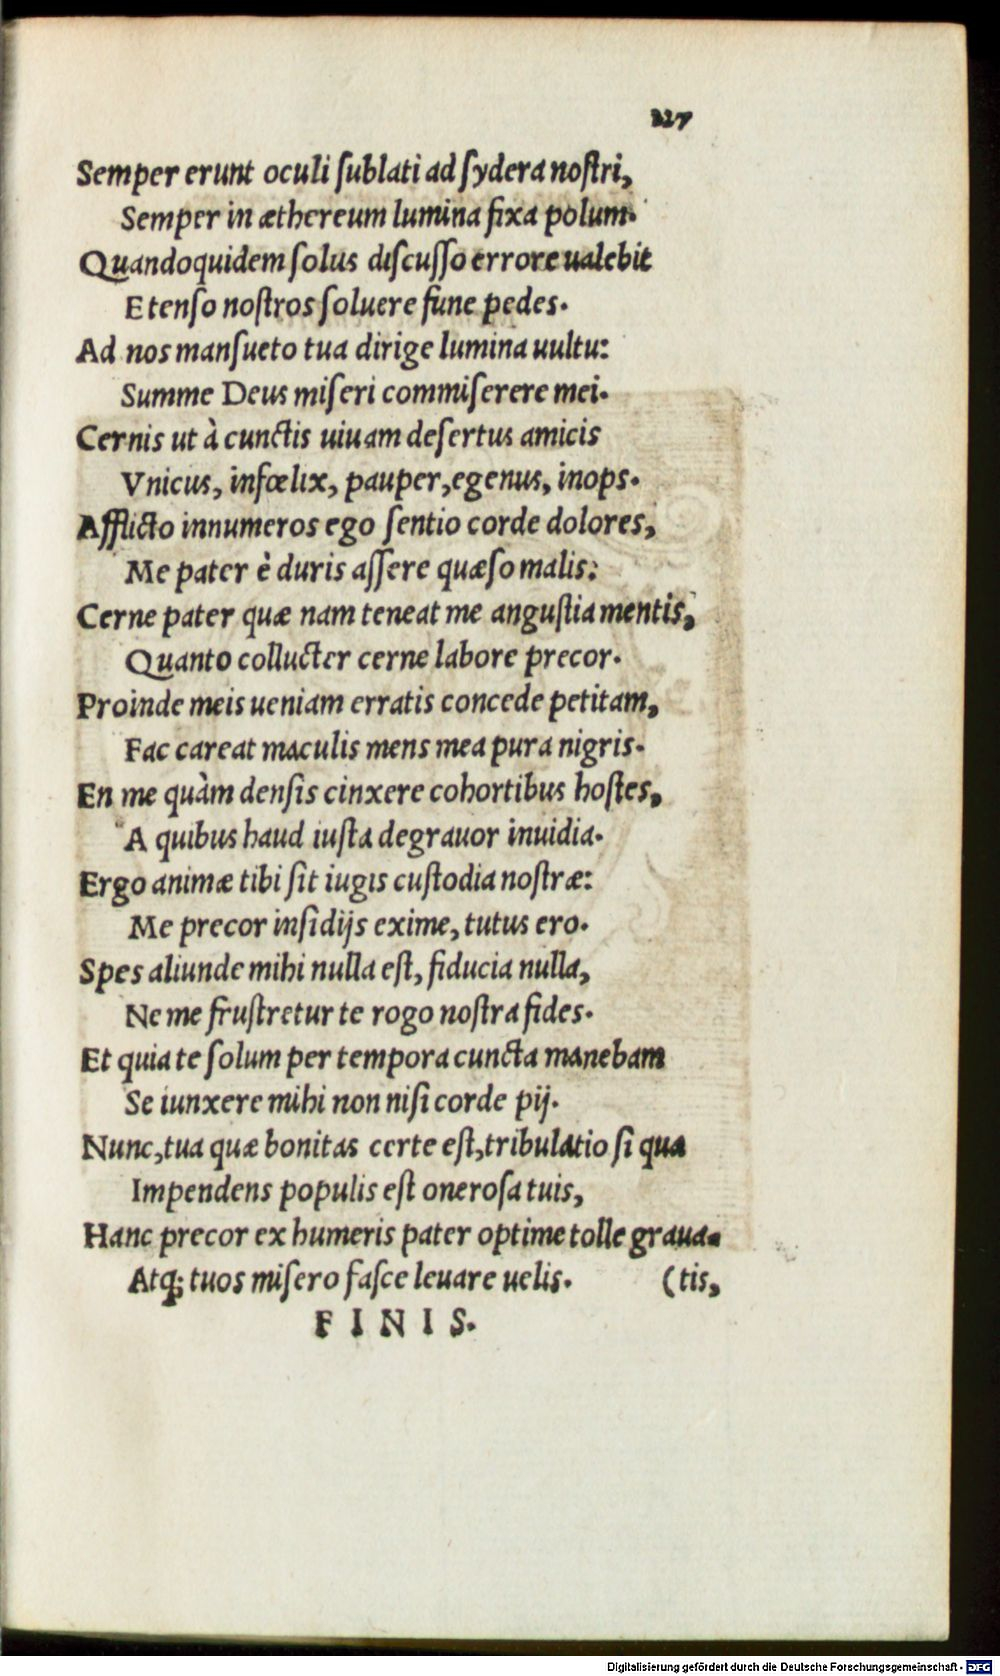 227
Semper erunt oculi ſublati ad ſydera noſtri,
Semper in æthereum lumina fixa polum.
Quandoquidem ſolus diſcuſſo errore ualebit
E tenſo noſtros ſoluere fune pedes.
Ad nos manſueto tua dirige lumina uultu:
Summe Deus miſeri commiſerere mei.
Cernis ut à cunctis uiuam deſertus amicis
Vnicus, infœlix, pauper, egenus, inops.
Afflicto innumeros ego ſentio corde dolores,
Me pater è duris aſſere quæſo malis:
Cerne pater quæ nam teneat me anguſtia mentis,
Quanto collucter cerne labore precor.
Proinde meis ueniam erratis concede petitam,
Fac careat maculis mens mea pura nigris.
En me quàm denſis cinxere cohortibus hoſtes,
A quibus haud iuſta degrauor inuidia.
Ergo animæ tibi ſit iugis cuſtodia noſtræ:
Me precor inſidijs exime, tutus ero.
Spes aliunde mihi nulla eſt, fiducia nulla,
Ne me fruſtretur te rogo noſtra fides.
Et quia te ſolum per tempora cuncta manebam
Se iunxere mihi non niſi corde pij.
Nunc, tua quæ bonitas certe eſt, tribulatio ſi qua
Impendens populis eſt oneroſa tuis,
Hanc precor ex humeris pater optime tolle graua-
Atq; tuos miſero faſce leuare uelis. (tis,
FINIS.
Digitalisierung gefördert durch die Deutsche Forschungsgemeinschaft - DFG